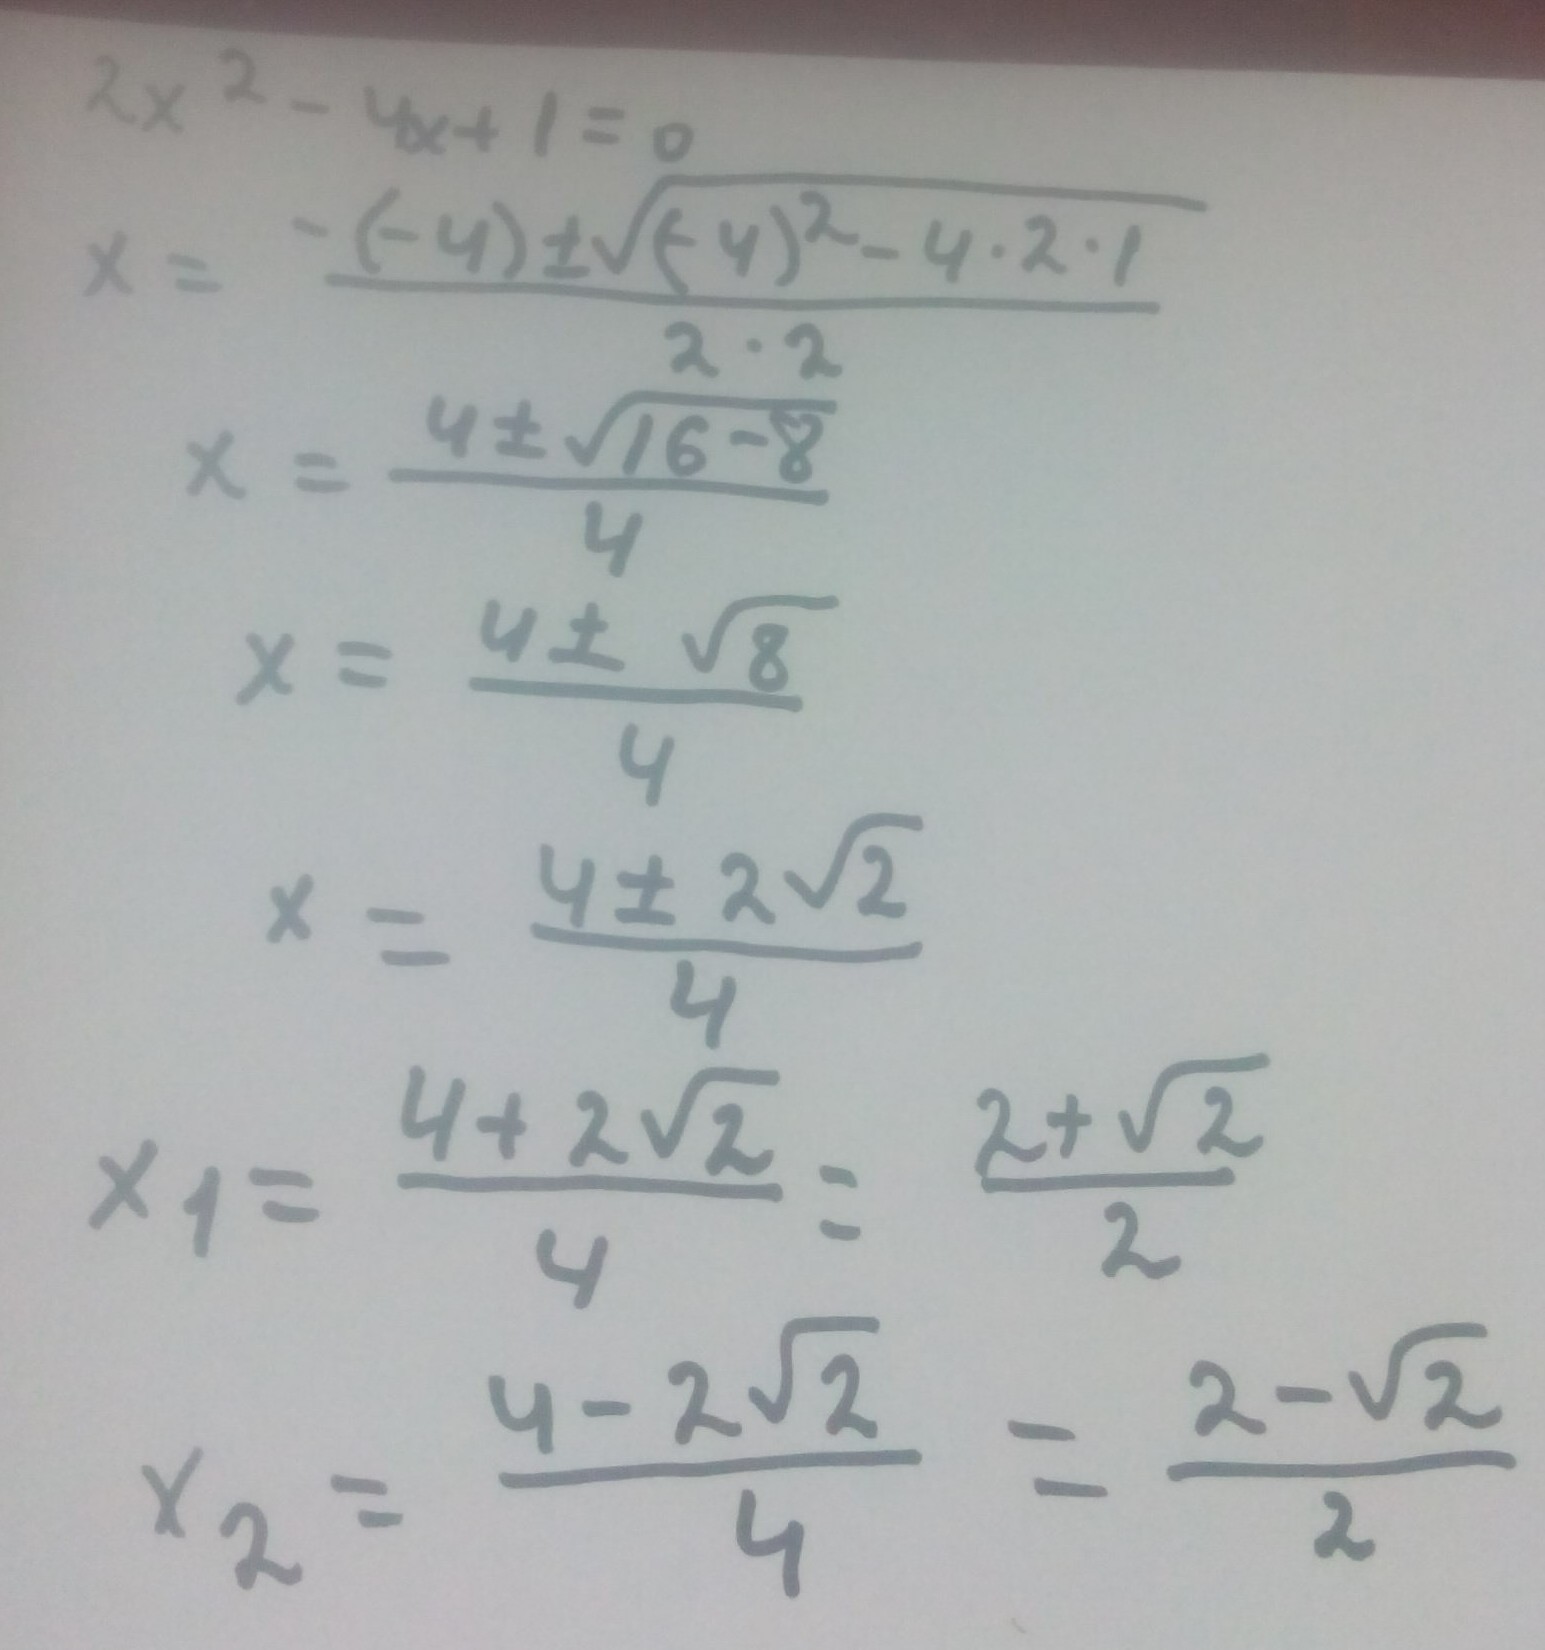 2x² - 4x + 1 = 0
x = (-(-4) ± √((-4)² - 4 · 2 · 1)) / (2 · 2)
x = (4 ± √(16 - 8)) / 4
x = (4 ± √8) / 4
x = (4 ± 2√2) / 4
x₁ = (4 + 2√2) / 4 = (2 + √2) / 2
x₂ = (4 - 2√2) / 4 = (2 - √2) / 2